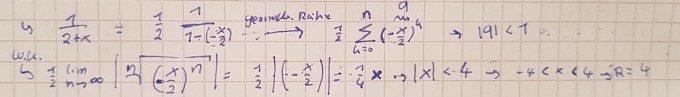 ↳ 1/(2+x) = 1/2 1/(1-(-x/2)) geometr. Reihe → 1/2 ∑_{n=0}^{n} (-x/2)^n q → |q| < 1
W.K. ↳ 1/2 lim_{n→∞} |ⁿ√((-x/2)^n)| = 1/2 |(-x/2)| = -1/4 x → |x| < -4 → -4 < x < 4 → R = 4